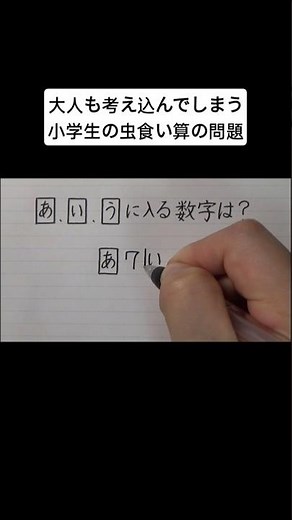 大人も考え込んでしまう
小学生の虫食い算の問題
あ、い、うに入る数字は?
あ7い